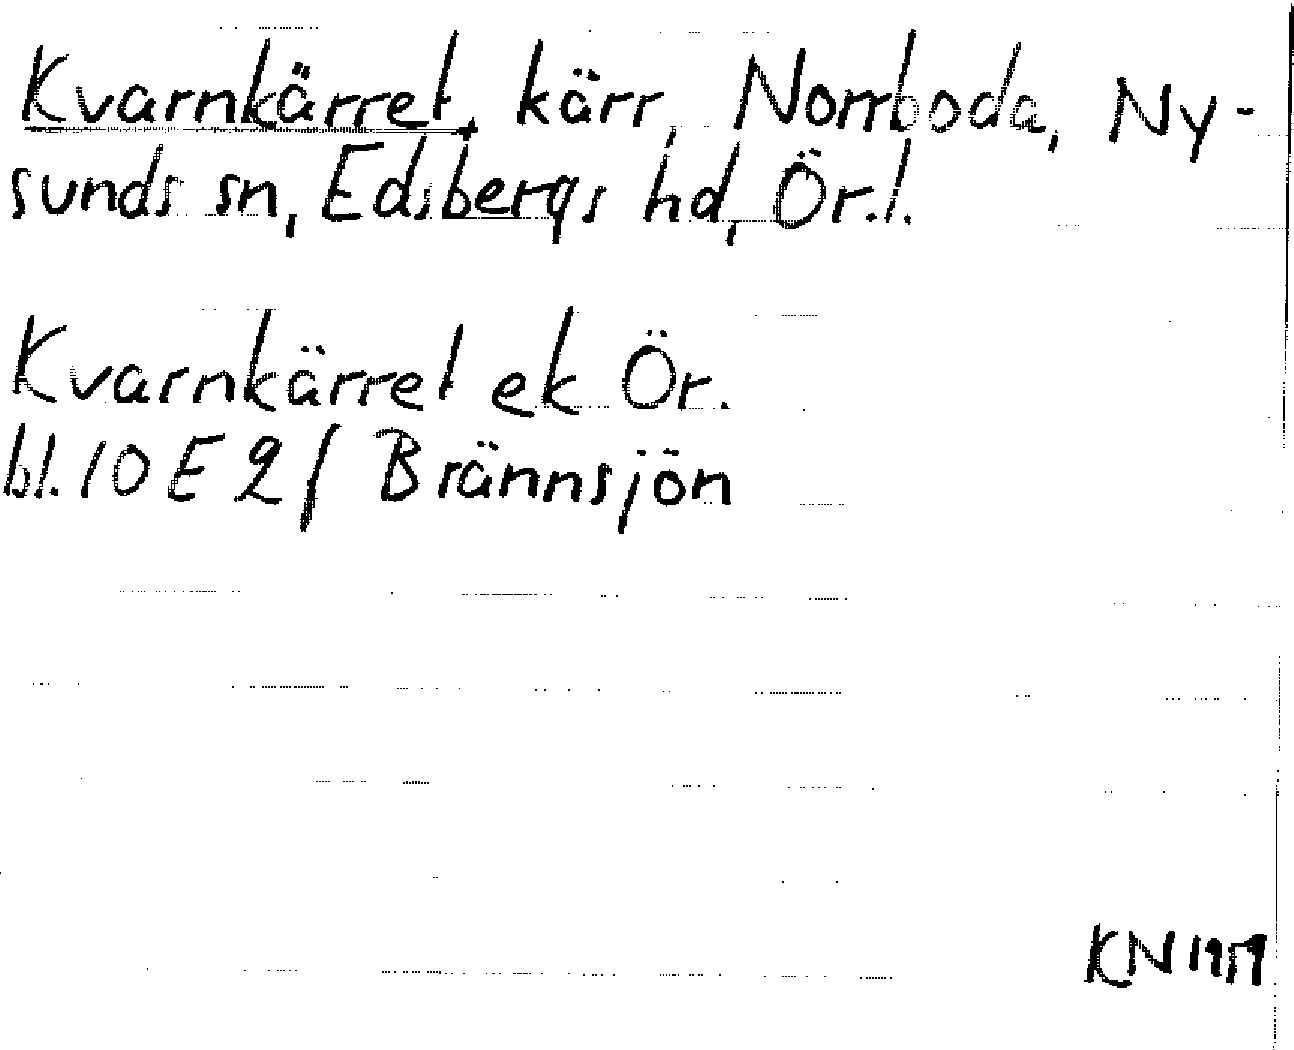 Kvarnkärret, kärr, Norrboda, Ny-
sunds sn, Edsbergs hd, Ör.l.
Kvarnkärret ek Ör.
bl. 10 E 2 f Brännsjön
KN 1959